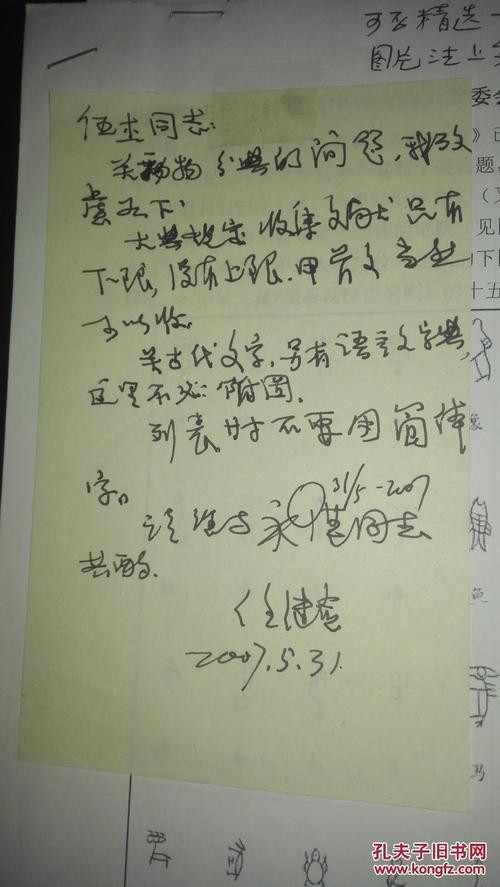 可否精选
图片法上
委会
》已
题,
见
下
十五
伍杰同志:
关动物分典的问题,我考
虑如下:
大典规定收集文献只有
下限,没有上限,甲骨文当然
可以收。
关古代文字,另有语言文字典,
这里不必附图。
列表时不要用简体
字。
请继
同志
31/5-2007
共酌。
任继愈
2007.5.31.
象
鱼
马
孔夫子旧书网
kongfz.com